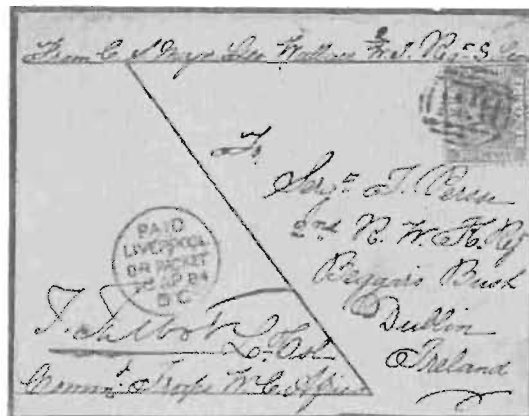 From C Sergt Geo Wallace 2 W. I. Regt S.
To
Serg T. Perese
2nd R. W. K. Regt
Beggars Bush
Dublin
Ireland
PAID
LIVERPOOL
BR PACKET
AP 84
T. Talbot Lt Col
Comm Troops W C Africa